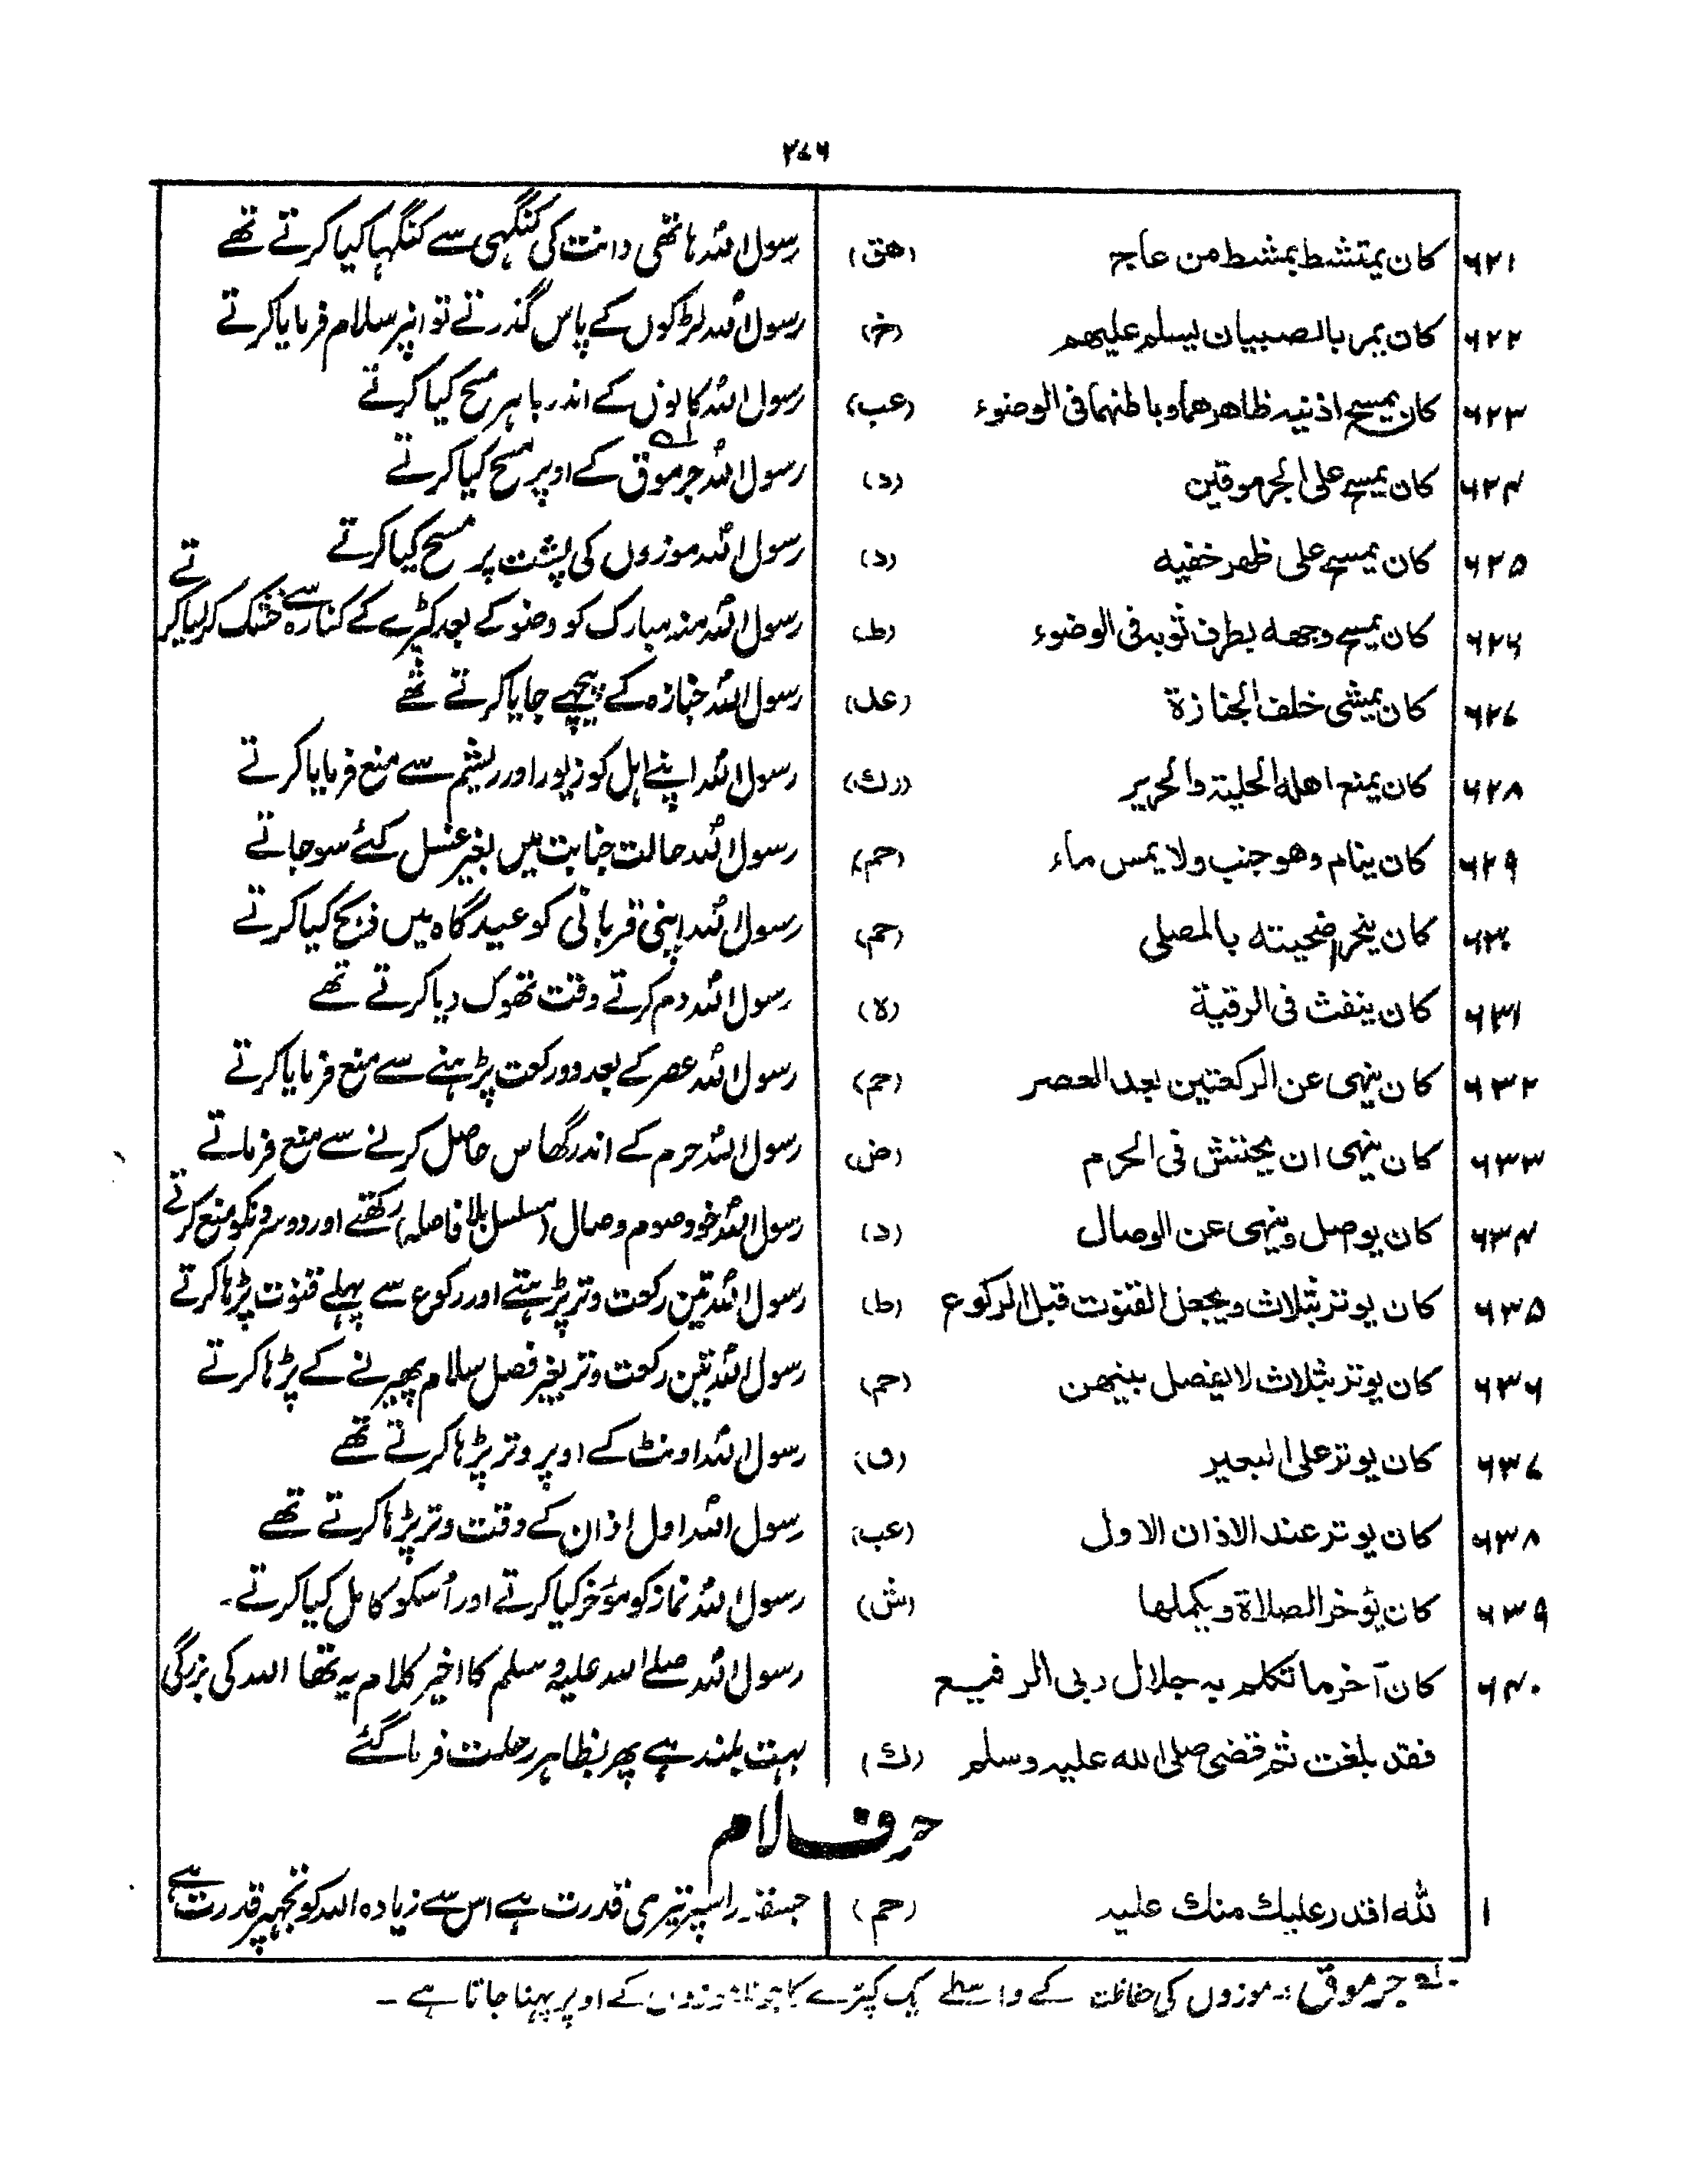 ۲۷۶
۶۲۱ كان يمتشط بمشط من عاج (هق) رسول اللہ ہاتھی دانت کی کنگہی سے کنگہا کیا کرتے تھے
۶۲۲ كان يمر بالصبيان يسلم عليهم (خ) رسول اللہ لڑکوں کے پاس گذرتے تو انپر سلام فرمایا کرتے
۶۲۳ كان يمسح اذنيه ظاهرهما وباطنهما فى الوضوء (عب) رسول اللہ کانوں کے اندر باہر مسح کیا کرتے
۶۲۴ كان يمسح على الجرموقين (د) رسول اللہ جرموق لہ کے اوپر مسح کیا کرتے
۶۲۵ كان يمسح على ظهر خفيه (د) رسول اللہ موزوں کی پشت پر مسح کیا کرتے
۶۲۶ كان يمسح وجهه بطرف ثوبه فى الوضوء (ط) رسول اللہ منہ مبارک کو وضو کے بعد کپڑے کے کنارہ سے خشک کرلیا کرتے
۶۲۷ كان يمشى خلف الجنازة (عل) رسول اللہ جنازہ کے پیچھے جایا کرتے تھے
۶۲۸ كان يمنع اهله الحلية والحرير (رك) رسول اللہ اپنے اہل کو زیور اور ریشم سے منع فرمایا کرتے
۶۲۹ كان ينام وهو جنب ولا يمس ماء (حم) رسول اللہ حالت جنابت میں بغیر غسل کئے سوجاتے
۶۳۰ كان ينحر اضحيته بالمصلى (حم) رسول اللہ اپنی قربانی کو عیدگاہ میں ذبح کیا کرتے
۶۳۱ كان ينفث فى الرقية (ه) رسول اللہ دم کرتے وقت تھوک دیا کرتے تھے
۶۳۲ كان ينهى عن الركعتين بعد العصر (حم) رسول اللہ عصر کے بعد دو رکعت پڑہنے سے منع فرمایا کرتے
۶۳۳ كان ينهى ان يحتش فى الحرم (ض) رسول اللہ حرم کے اندر گھاس حاصل کرنے سے منع فرماتے
۶۳۴ كان يوصل وينهى عن الوصال (د) رسول اللہ خود صوم وصال (مسلسل بلا فاصلہ) رکھتے اور دوسرونکو منع کرتے
۶۳۵ كان يوتر بثلاث ويجعل القنوت قبل الركوع (ط) رسول اللہ تین رکعت وتر پڑہتے اور رکوع سے پہلے قنوت پڑہا کرتے
۶۳۶ كان يوتر بثلاث لا يفصل بينهن (حم) رسول اللہ تین رکعت وتر بغیر فصل سلام پھیرنے کے پڑہا کرتے
۶۳۷ كان يوتر على البعير (ق) رسول اللہ اونٹ کے اوپر وتر پڑہا کرتے تھے
۶۳۸ كان يوتر عند الاذان الاول (عب) رسول اللہ اول اذان کے وقت وتر پڑہا کرتے تھے
۶۳۹ كان يؤخر الصلاة ويكملها (ش) رسول اللہ نماز کو مؤخر کیا کرتے اور اُسکو کامل کیا کرتے۔
۶۴۰ كان آخر ما تكلم به جلال ربى الرفيع رسول اللہ صلے اللہ علیہ وسلم کا اخیر کلام یہ تھا اللہ کی بزرگی
فقد بلغت ثم قضى صلى الله عليه وسلم (ك) بہت بلند ہے پھر بظاہر رحلت فرماگئے
حرف لام
۱ لله اقدر عليك منك عليه (حم) جسقدر اسپر تیری قدرت ہے اس سے زیادہ اللہ کو تجہپر قدرت ہے
لہ جرموق :۔ موزوں کی حفاظت کے واسطے یک کپڑے کا موزوں کے اوپر پہنا جاتا ہے ۔